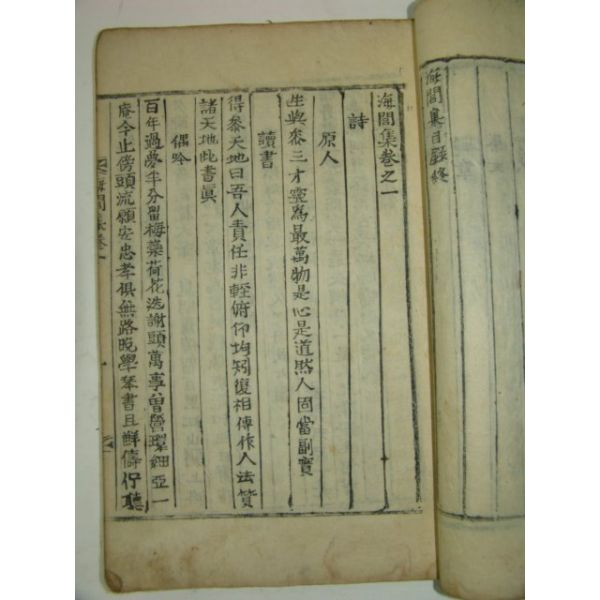 海閭集目錄終
海閭集卷之一
詩
原人
生與叅三才寔爲最萬物是心是道然人固當副實
讀書
得叅天地曰吾人責任非輕俯仰均知復相傳作人法贊
諸天地此書眞
偶吟
百年過夢半分留梅蘂荷花迭謝頭萬事曾營環細亞一
庵今止傍頭流願安忠孝俱無路晩學琴書且鮮儔佇聽
海閭集卷一